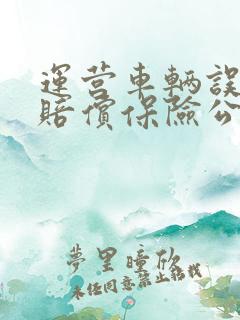 運营車輛誤
賠償保險公
夢里瞳欣
未经同意禁止转载